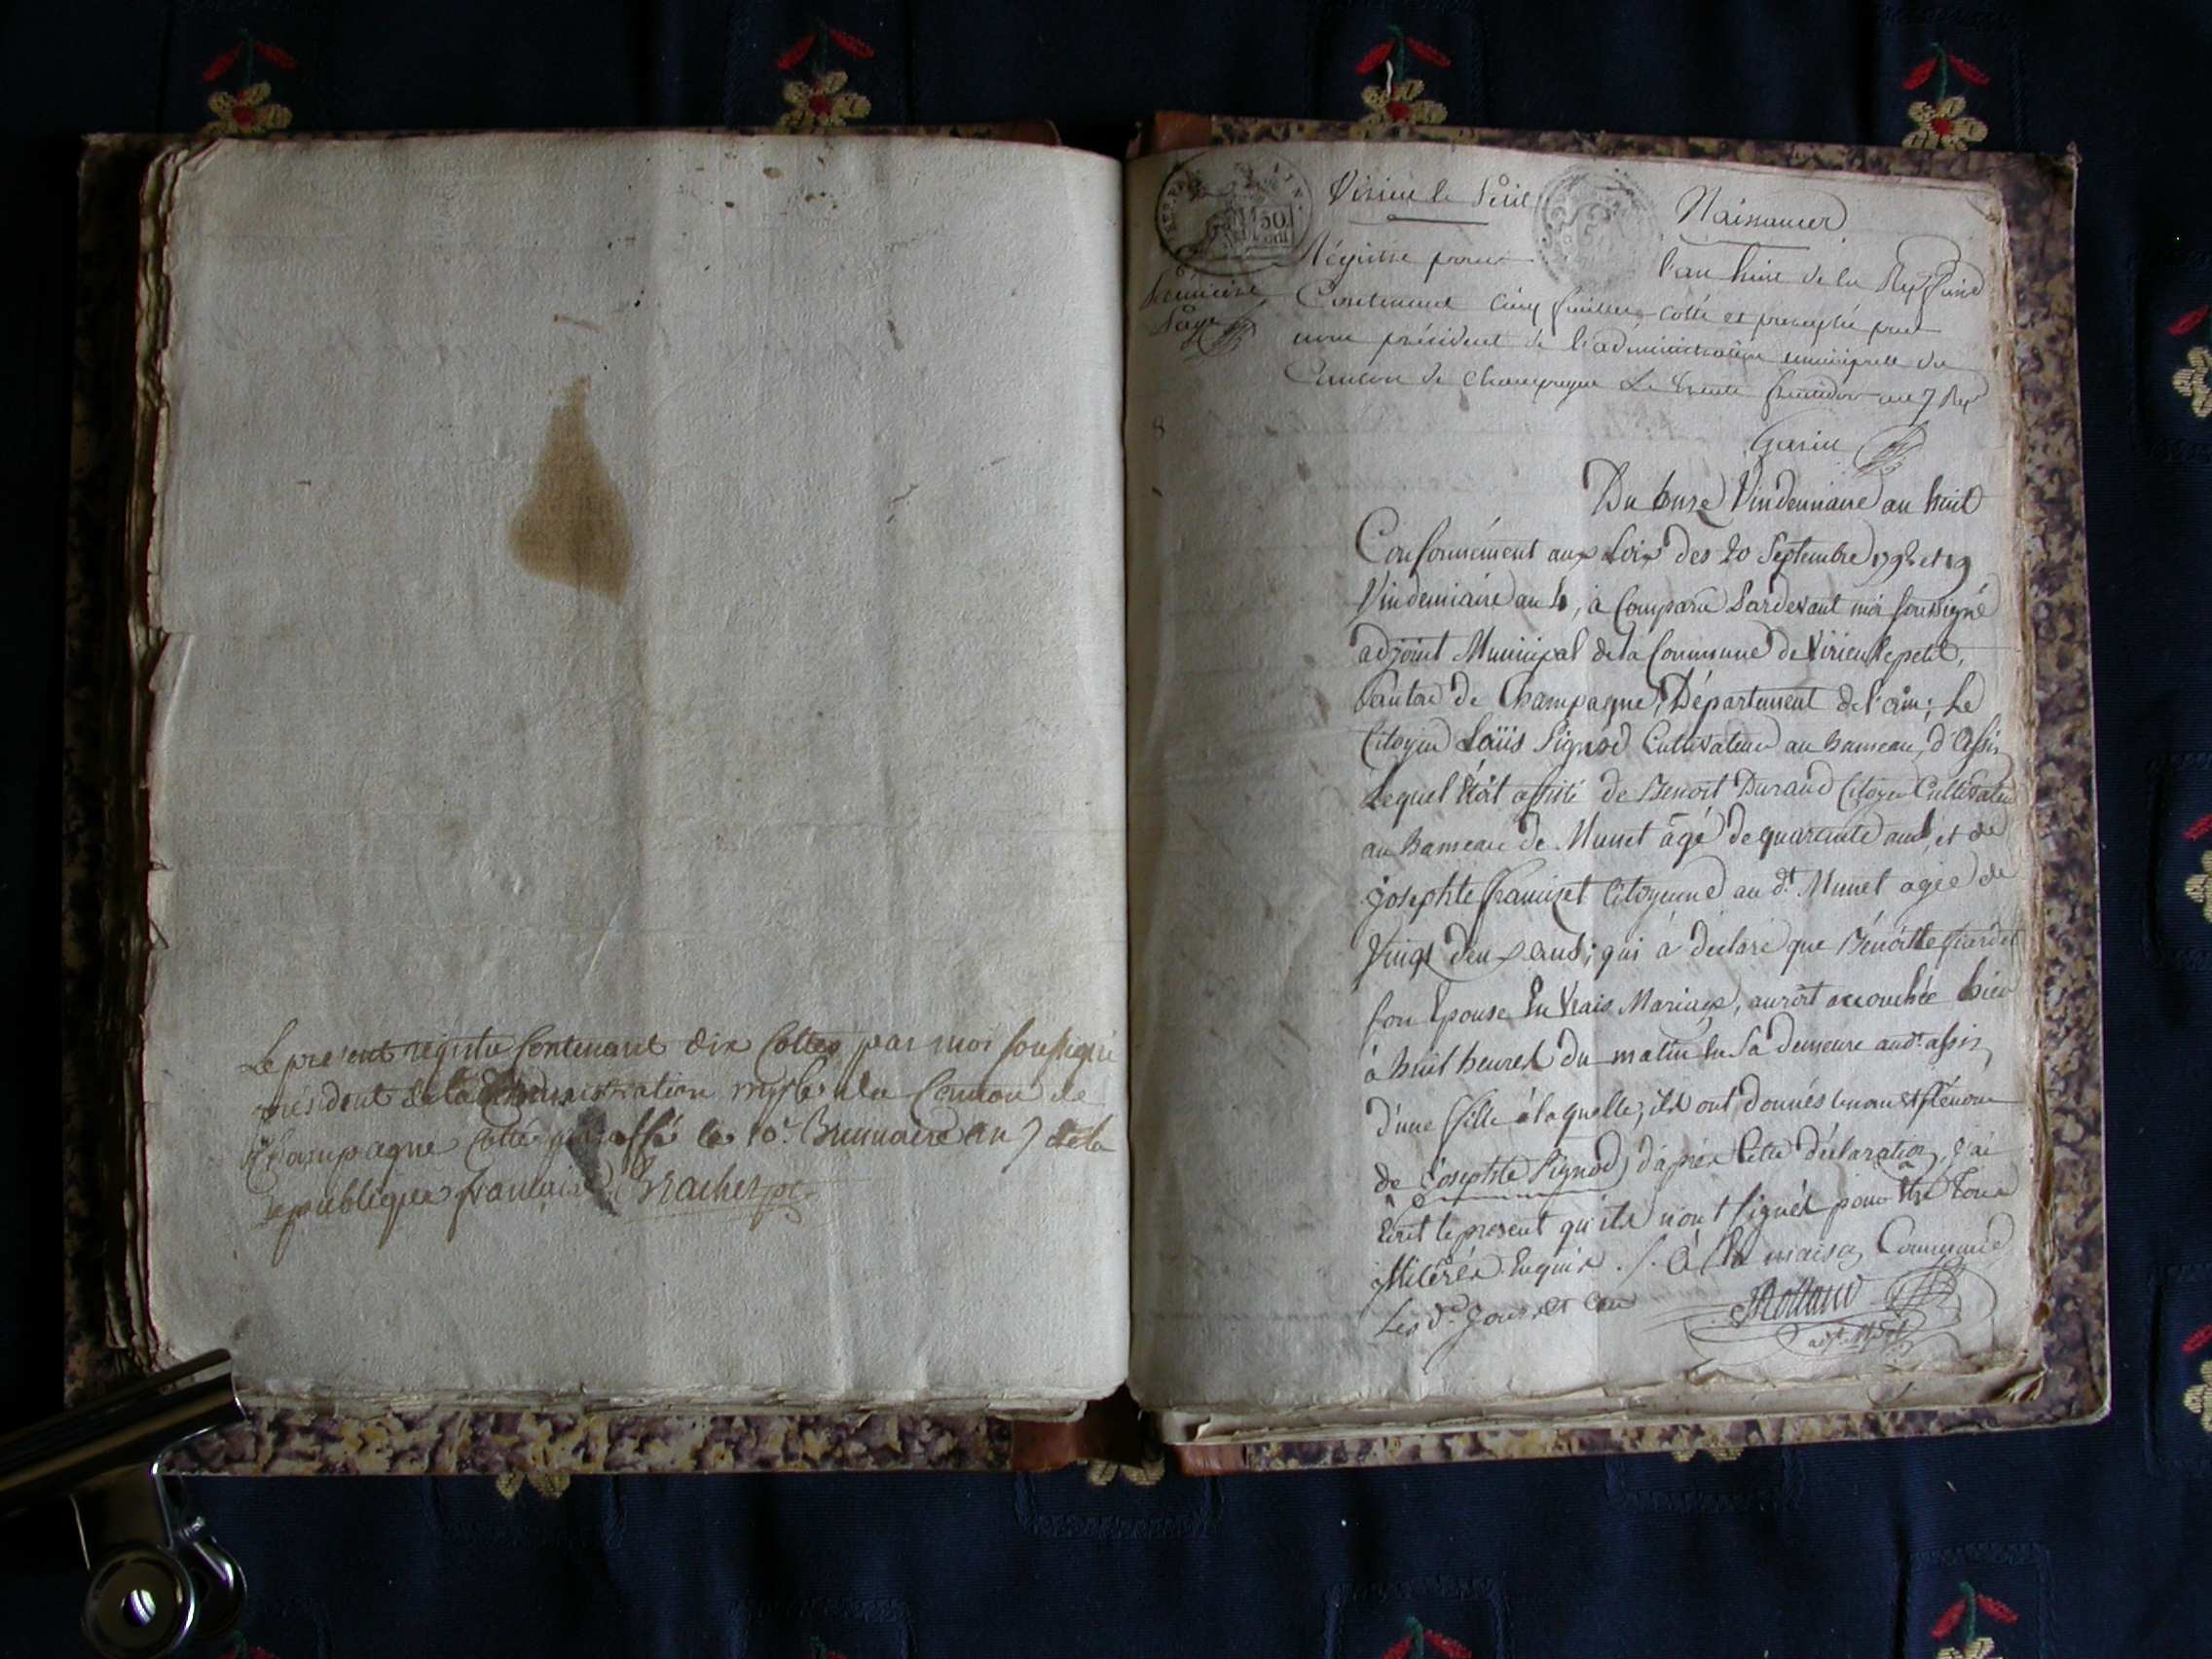 Le present registre Contenant dix Cottes par moi Soussigné
président de la administration mple du Canton de
Champagne Cotté paraffé le 10e. Brumaire an 7 de la
republique francaise Brachet pt.
REP. FRA
50
Virieu le Petit
Naissances
Régistre pour l'an huit de la Rep. fcaise
premiere
Page
Contenant Cinq feuilles cotté et paraphé par
nous président de l'administration municipalle du
Canton de Champagne Le trente fructidor an 7 Rep
Garin
8
Du onze Vindemiaire an huit
Conformément aux Loix des 20 Septembre 1792 et 19
Vindemiaire an 4, à Comparu Pardevant moi soussigné
adjoint Municipal de la Commune de Virieu le petit,
Canton de Champagne, Département de l'ain; Le
Citoyen Loüis Pignod Cultivateur au hameau d'Assin
Lequel étoit assisté de Benoit Durand Citoyen Cultivateur
au hameau de Munet âgé de quarante ans, et de
josephte franciset Citoyenne au dt. Munet agée de
Vingt deux ans; qui à déclaré que Benoitte
son Epouse En Vrais Mariage, auroit accouchée hier
à huit heures du matin en Sa demeure audt. assin,
d'une fille à laquelle, ils ont donnés le nom et prénom
de Josephte Pignod, d'après Cette déclaration, j'ai
Ecrit le present qu'ils n'ont signés pour être tous
illitérés Enquis ./. à la maison Commune
Les dt. Jour et an
JRolland
adjt. Mpal